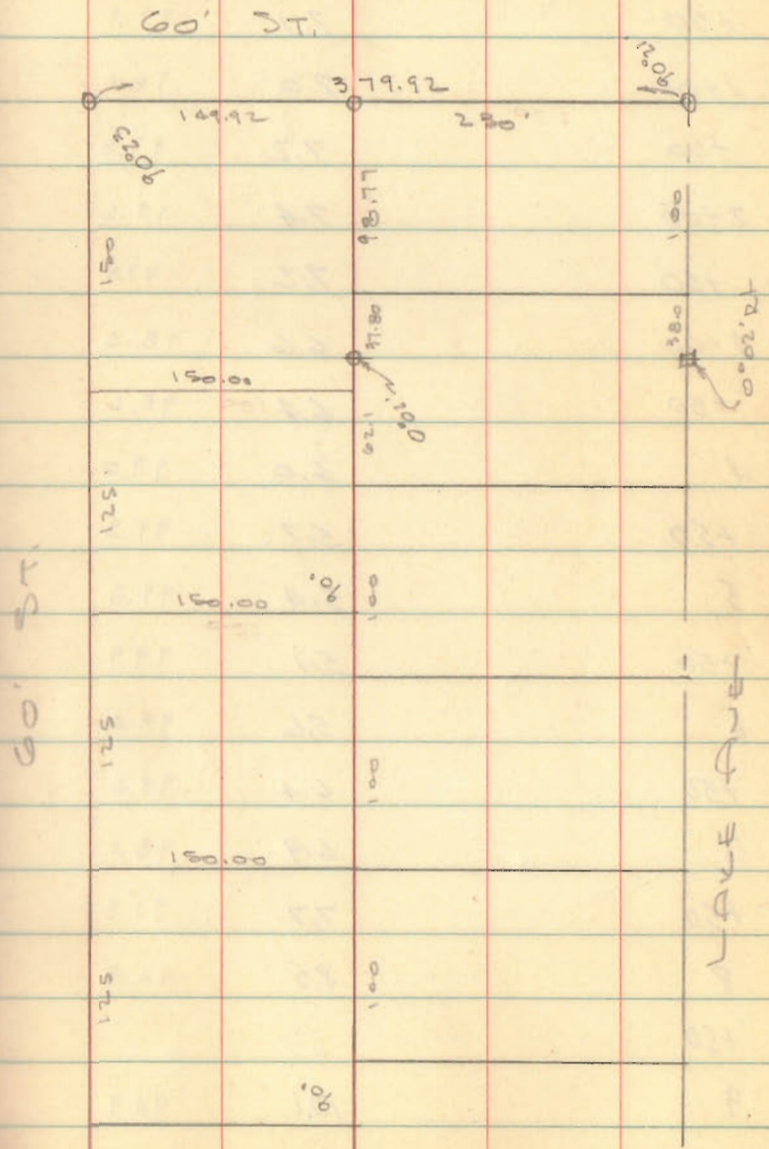 60' ST.
379.92
90°21'
149.92
230'
90°23'
98.77
100
150
37.80
38.0
0°02'Rt
150.00
0°01'
62.1
125
90°
150.00
100
60' ST.
125
100
LAKE AVE
150.00
125
100
90°